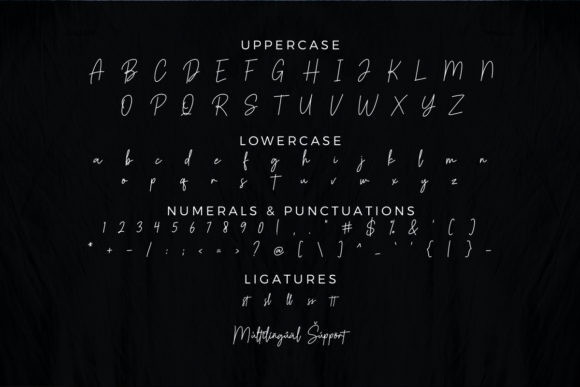 UPPERCASE
A B C D E F G H I J K L M N
O P Q R S T U V W X Y Z
LOWERCASE
a b c d e f g h i j k l m n
o p q r s t u v w x y z
NUMERALS & PUNCTUATIONS
1 2 3 4 5 6 7 8 9 0 ! , . " # $ % & ' ( )
* + - / : ; < = > ? @ [ \ ] ^ _ ` ` { | } -
LIGATURES
st sl ll ss tt
Múltílíngúál Šúppórt